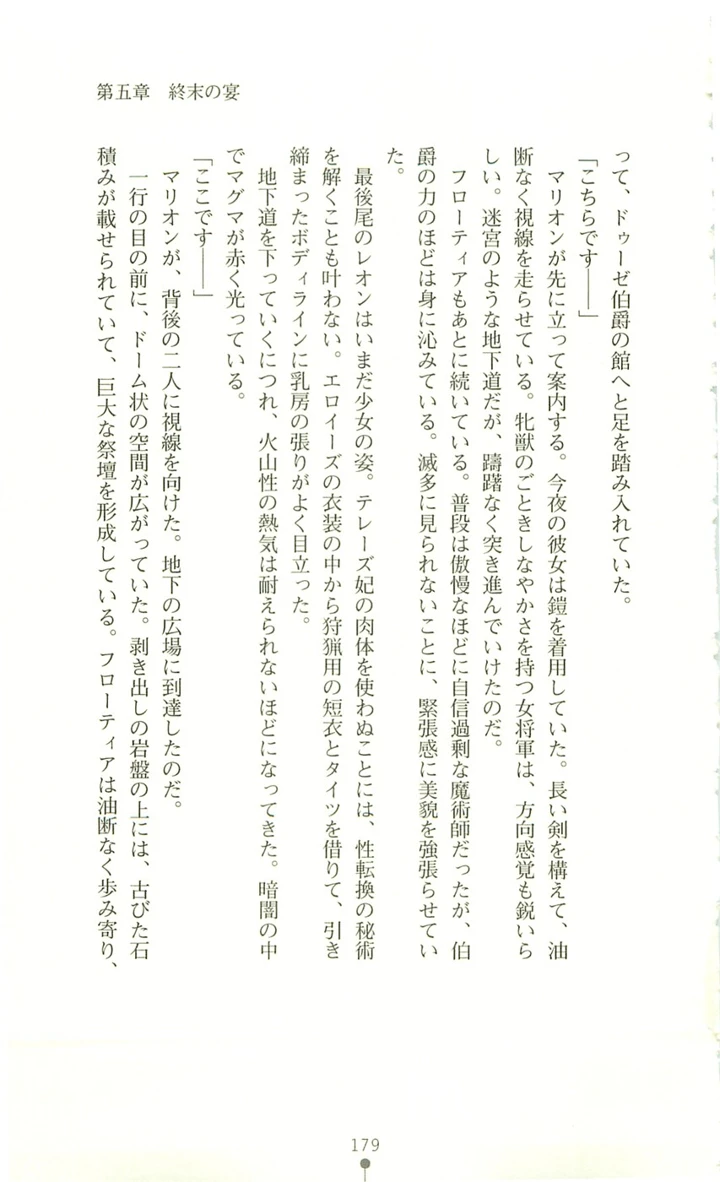 第五章　終末の宴
って、ドゥーゼ伯爵の館へと足を踏み入れていた。
「こちらです――」
　マリオンが先に立って案内する。今夜の彼女は鎧を着用していた。長い剣を構えて、油
断なく視線を走らせている。牝獣のごときしなやかさを持つ女将軍は、方向感覚も鋭いら
しい。迷宮のような地下道だが、躊躇なく突き進んでいけたのだ。
　フローティアもあとに続いている。普段は傲慢なほどに自信過剰な魔術師だったが、伯
爵の力のほどは身に沁みている。滅多に見られないことに、緊張感に美貌を強張らせてい
た。
　最後尾のレオンはいまだ少女の姿。テレーズ妃の肉体を使わぬことには、性転換の秘術
を解くことも叶わない。エロイーズの衣装の中から狩猟用の短衣とタイツを借りて、引き
締まったボディラインに乳房の張りがよく目立った。
　地下道を下っていくにつれ、火山性の熱気は耐えられないほどになってきた。暗闇の中
でマグマが赤く光っている。
「ここです――」
　マリオンが、背後の二人に視線を向けた。地下の広場に到達したのだ。
　一行の目の前に、ドーム状の空間が広がっていた。剥き出しの岩盤の上には、古びた石
積みが載せられていて、巨大な祭壇を形成している。フローティアは油断なく歩み寄り、
179